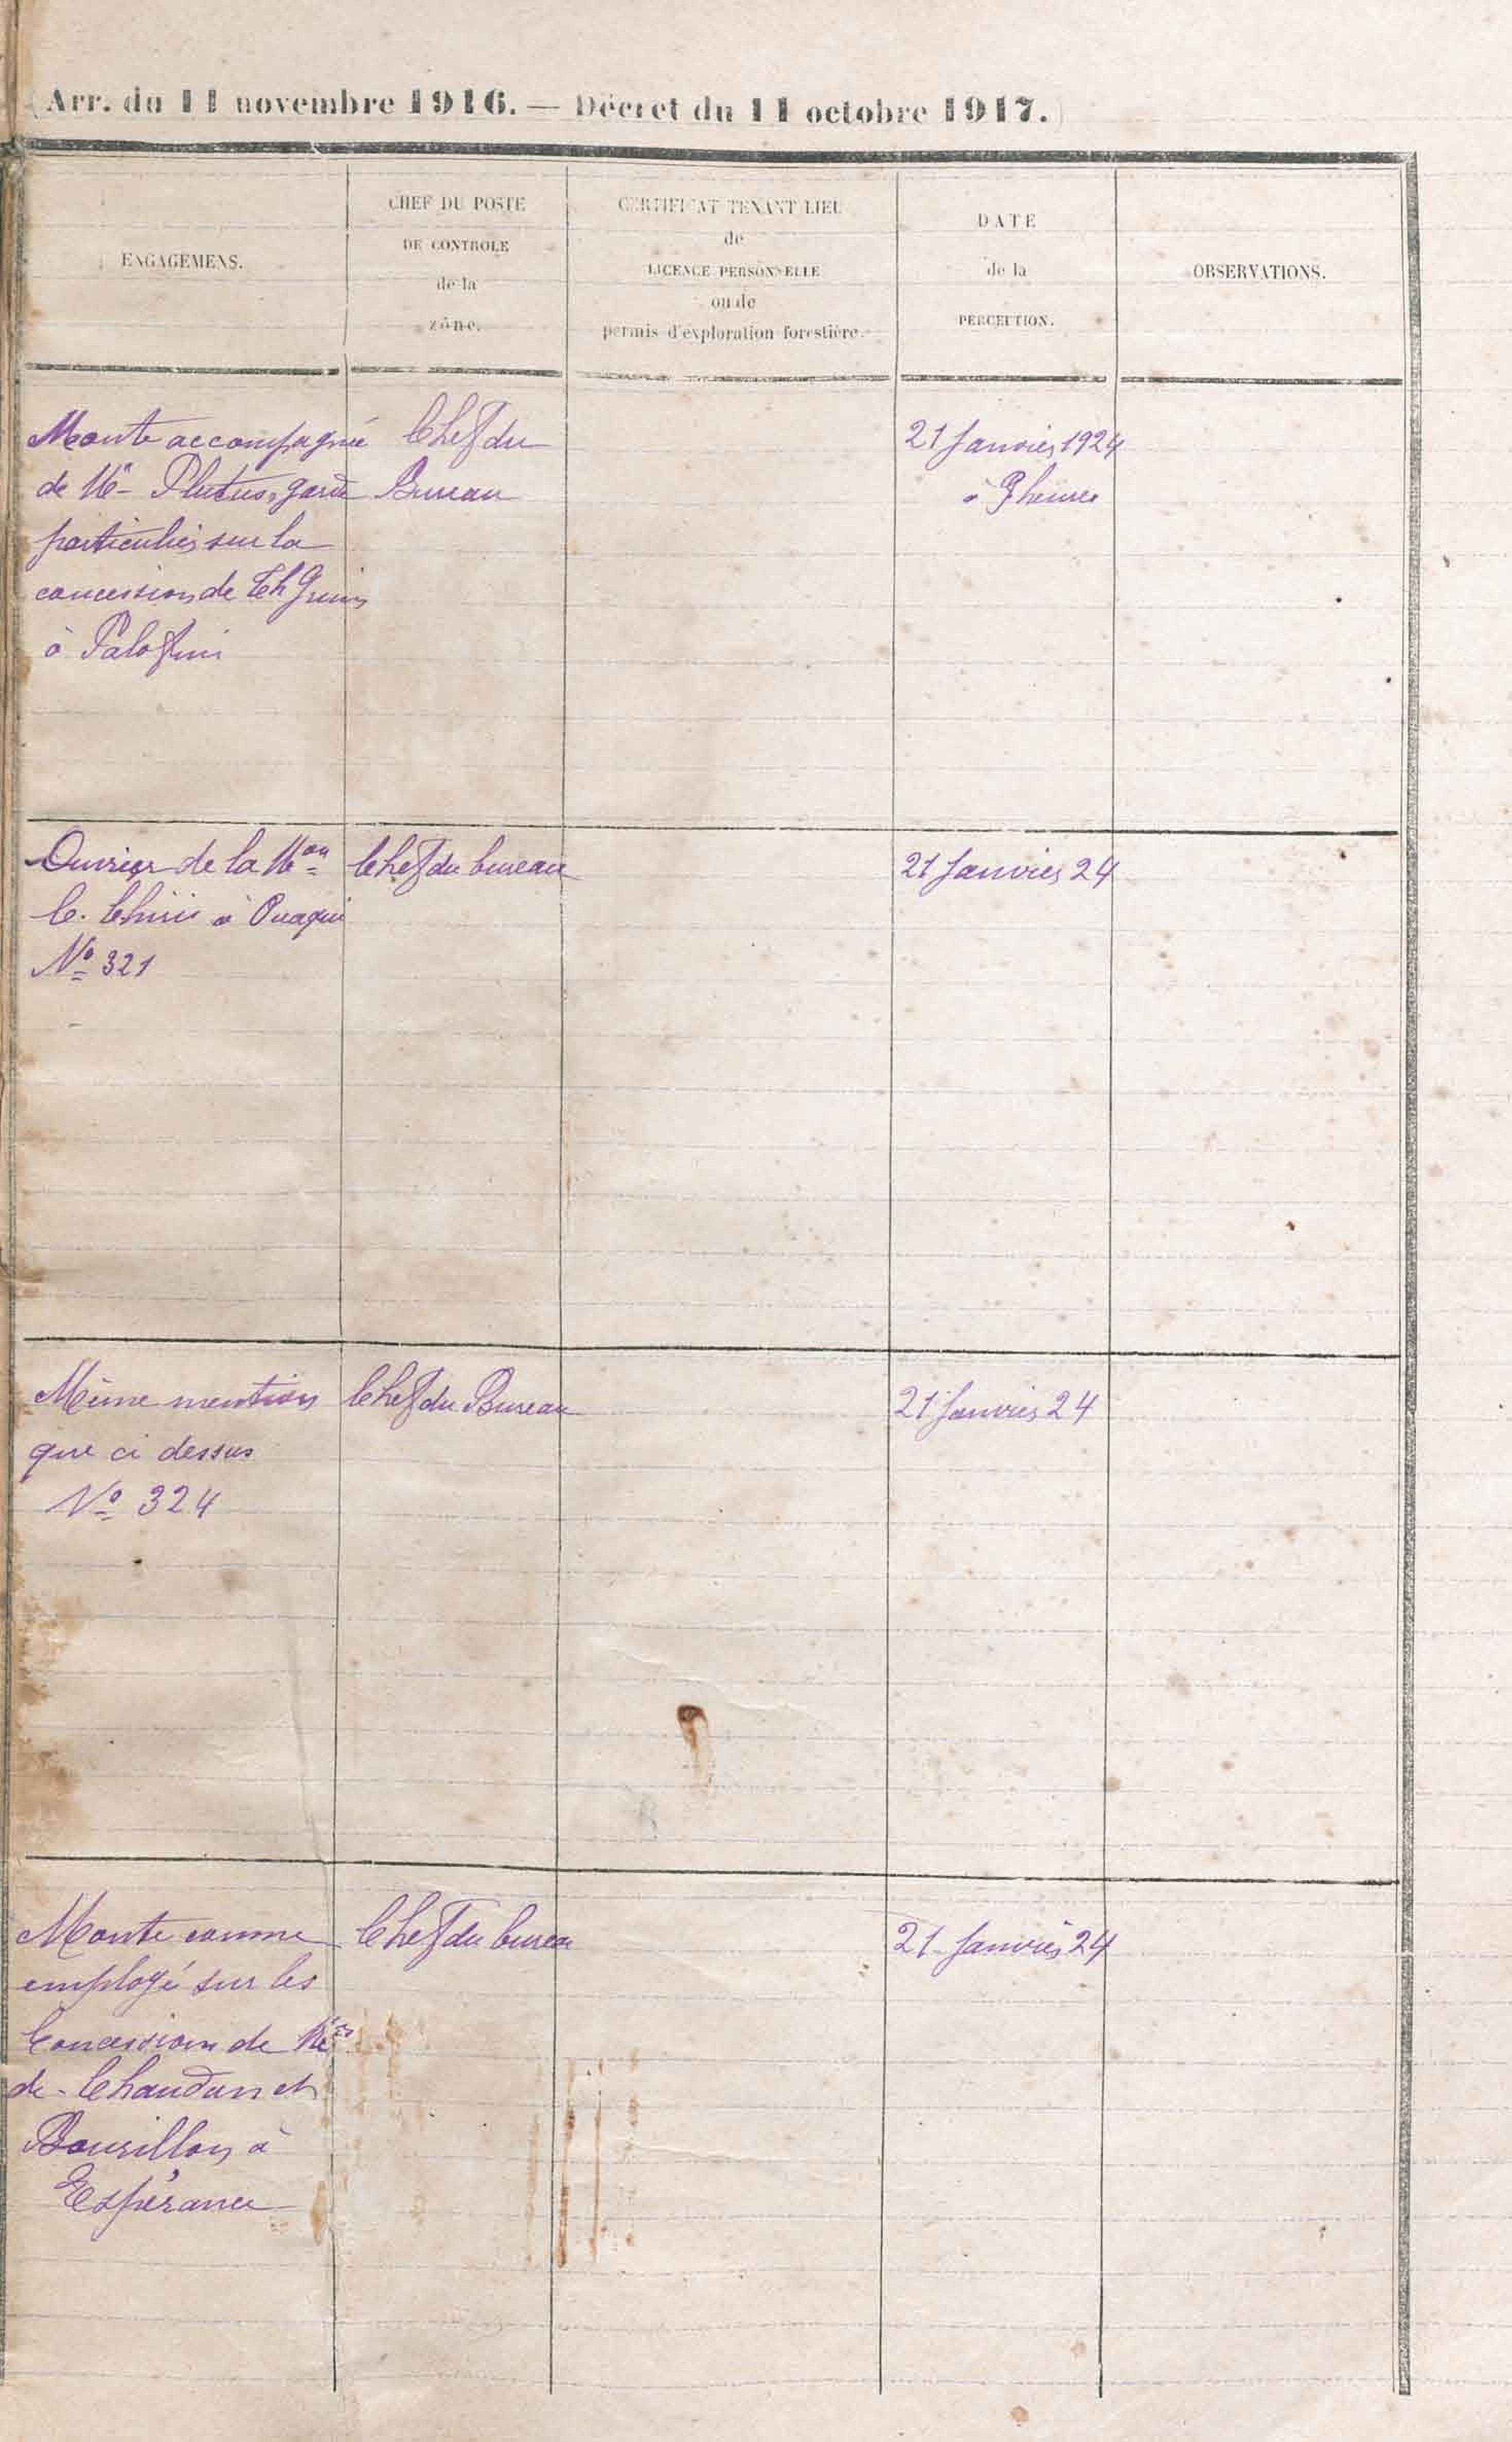 (Arr. du 11 novembre 1916. — Décret du 11 octobre 1917.)
ENGAGEMENS.
CHEF DU POSTE
DE CONTROLE
de la
zône.
CERTIFICAT TENANT LIEU
de
LICENCE PERSONNELLE
ou de
permis d'exploration forestière.
DATE
de la
PERCEPTION.
OBSERVATIONS.
Monte accompagné
de Mr Plutus, garde
particulier sur la
concession de Th
à
Chef du
Bureau
21 Janvier 1924
à 9 heures
Ouvrier de la Mon
C. Chiris à Ouaqui
No 321
Chef du bureau
21 Janvier 24
Même mention
que ci dessus
No 324
Chef du Bureau
21 Janvier 24
Monte comme
employé sur les
Concession de
de Chaudun et
Bourillon à
Espérance
Chef du bureau
21 Janvier 24